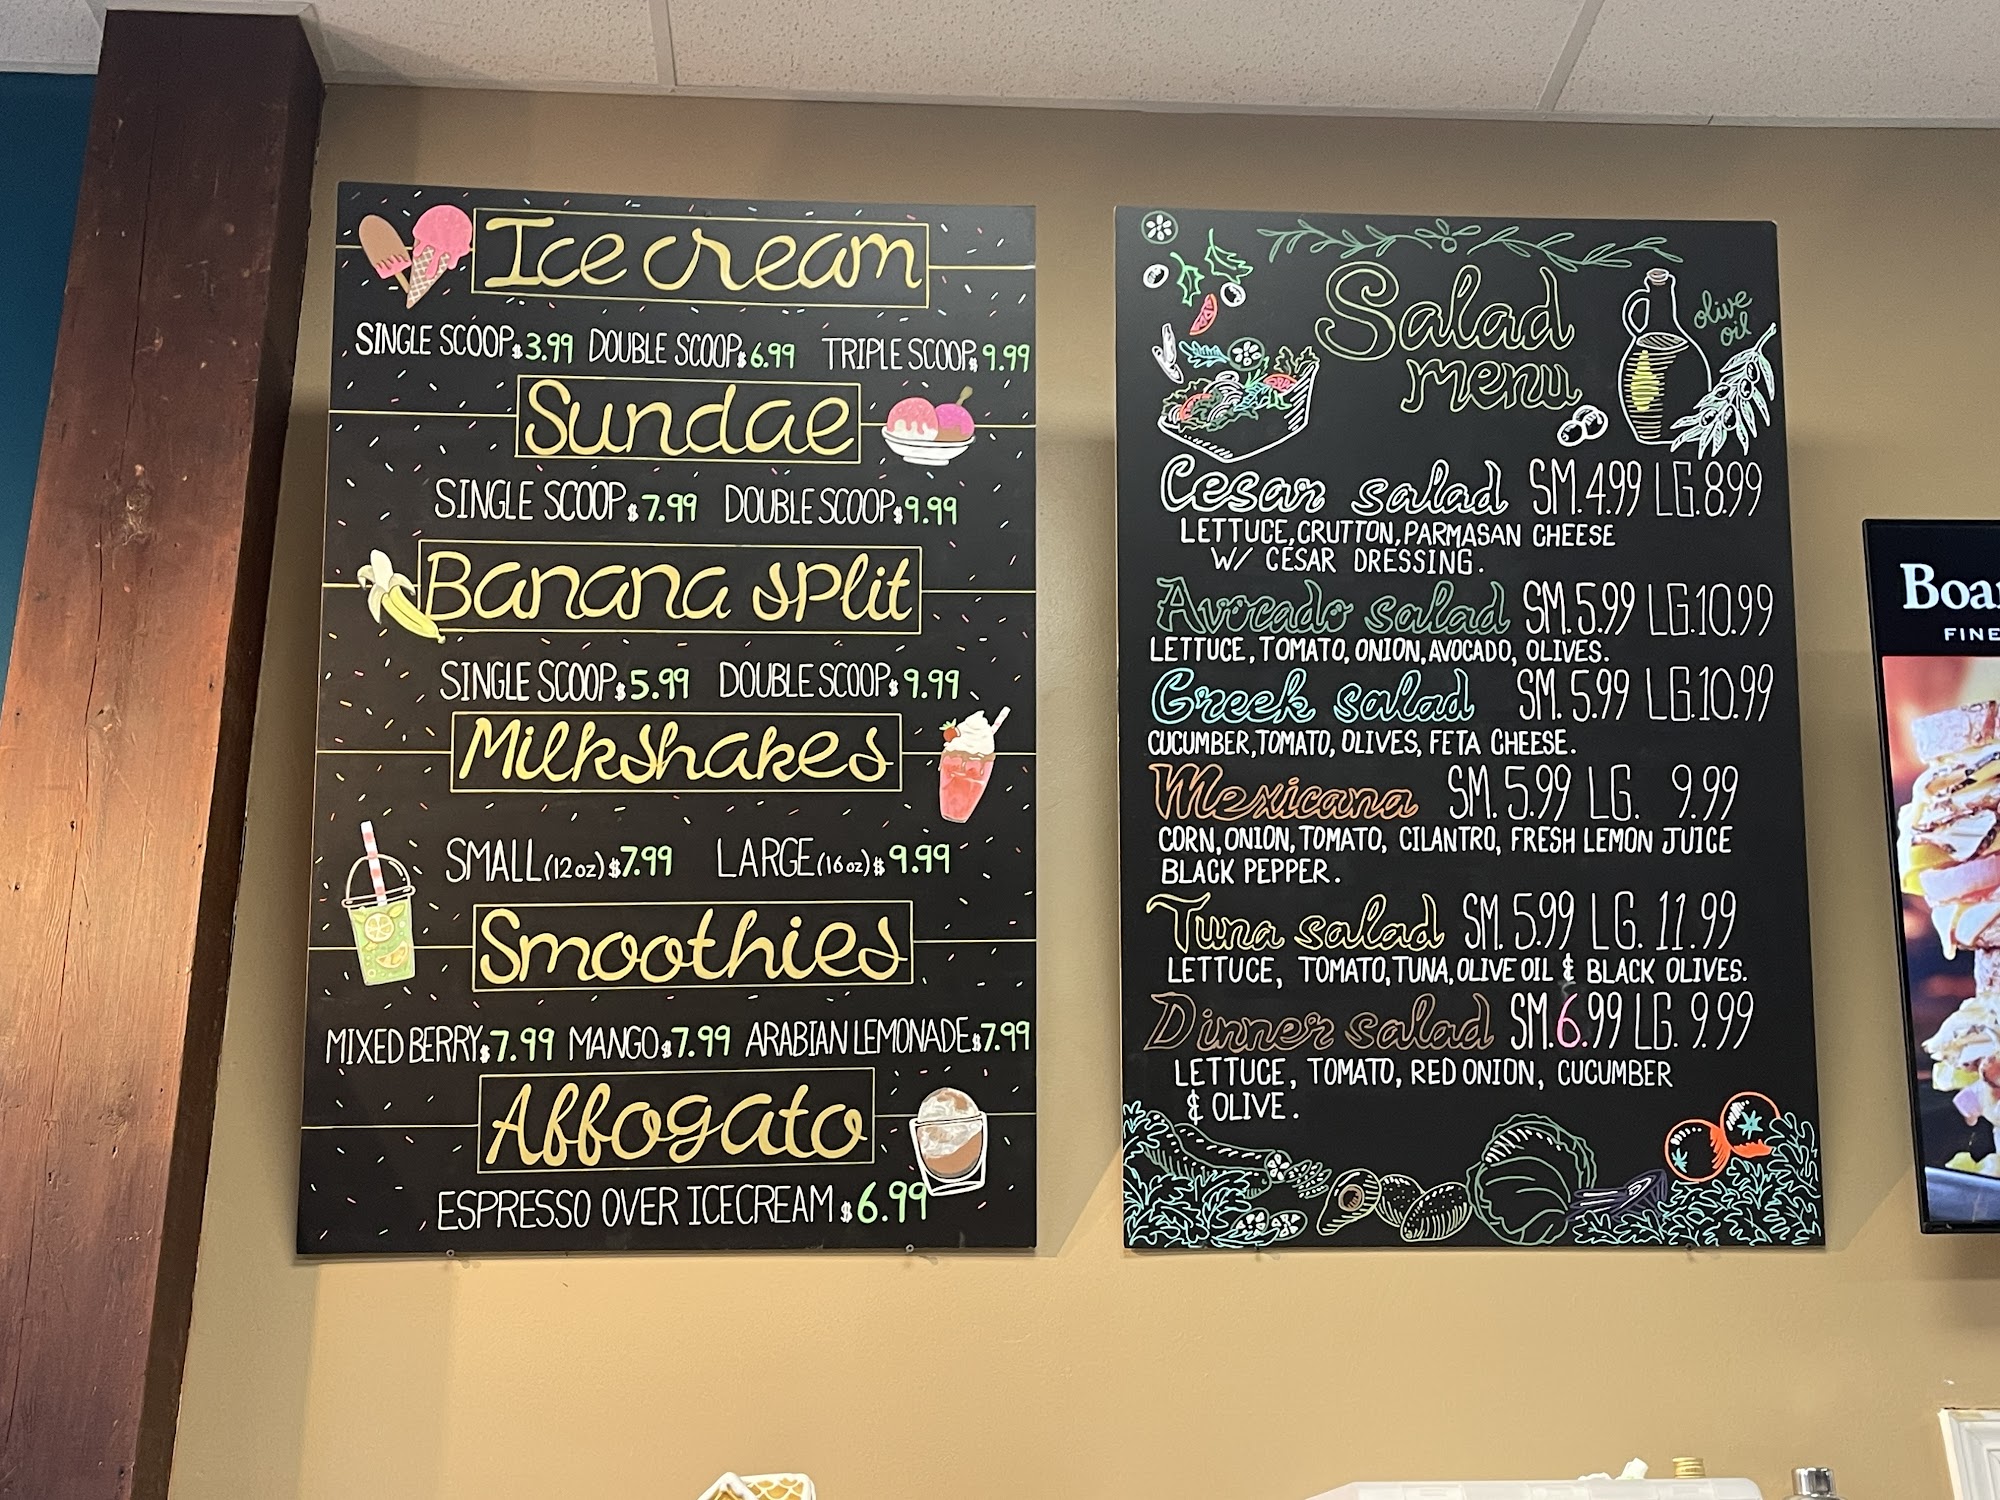 Ice cream
SINGLE SCOOP $3.99 DOUBLE SCOOP $6.99 TRIPLE SCOOP $9.99
Sundae
SINGLE SCOOP $7.99 DOUBLE SCOOP $9.99
Banana split
SINGLE SCOOP $5.99 DOUBLE SCOOP $9.99
Milkshakes
SMALL (12oz) $7.99 LARGE (16oz) $9.99
Smoothies
MIXED BERRY $7.99 MANGO $7.99 ARABIAN LEMONADE $7.99
Affogato
ESPRESSO OVER ICECREAM $6.99
Salad
menu
olive
oil
Cesar salad SM. 4.99 LG. 8.99
LETTUCE, CRUTTON, PARMASAN CHEESE
W/ CESAR DRESSING.
Avocado salad SM. 5.99 LG. 10.99
LETTUCE, TOMATO, ONION, AVOCADO, OLIVES.
Greek salad SM. 5.99 LG. 10.99
CUCUMBER, TOMATO, OLIVES, FETA CHEESE.
Mexicana SM. 5.99 LG. 9.99
CORN, ONION, TOMATO, CILANTRO, FRESH LEMON JUICE
BLACK PEPPER.
Tuna salad SM. 5.99 LG. 11.99
LETTUCE, TOMATO, TUNA, OLIVE OIL & BLACK OLIVES.
Dinner salad SM. 6.99 LG. 9.99
LETTUCE, TOMATO, RED ONION, CUCUMBER
& OLIVE.
Boa
FINE